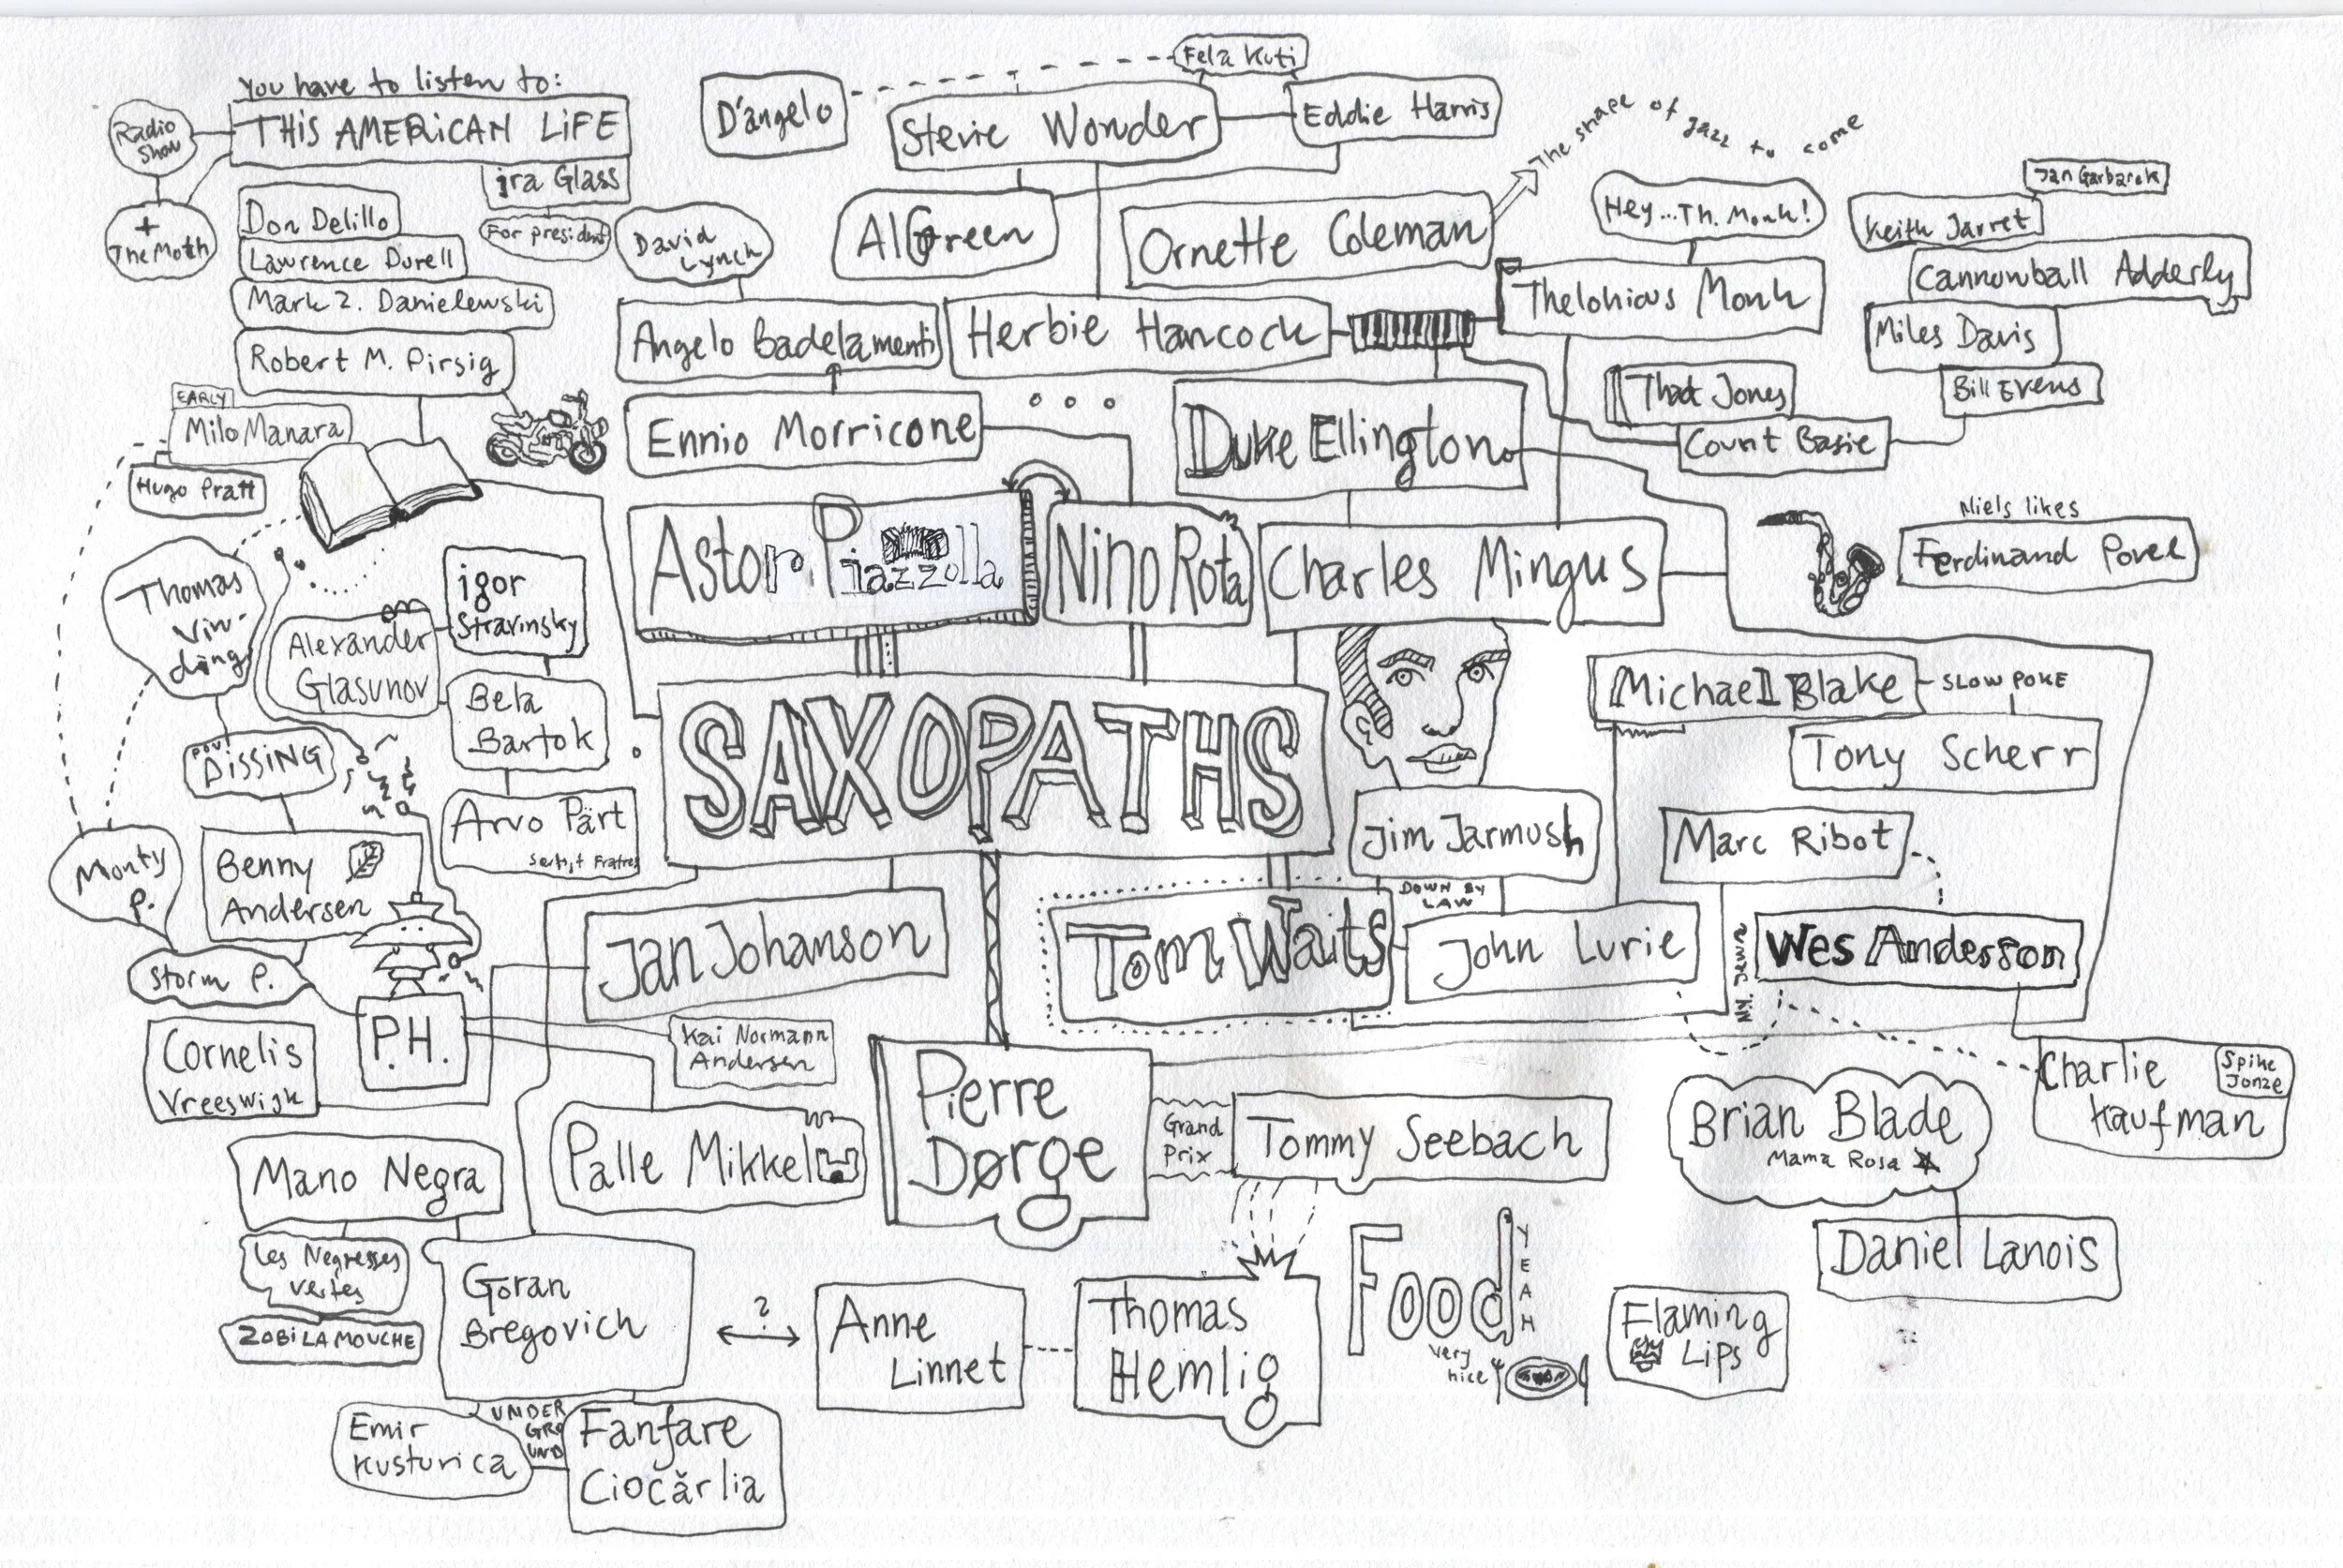 You have to listen to:
THIS AMERICAN LIFE
Radio
Show
ira Glass
For president
+
The Moth
Don Delillo
Lawrence Durell
Mark Z. Danielewski
Robert M. Pirsig
EARLY
Milo Manara
Hugo Pratt
D'angelo
Fela Kuti
Stevie Wonder
Eddie Harris
Al Green
Ornette Coleman
The shape of jazz to come
Hey...Th. Monk!
Thelonious Monk
Jan Garbarek
Keith Jarret
Cannonball Adderly
Miles Davis
Bill Evens
Thad Jones
Count Basie
David
Lynch
Angelo Badelamenti
Herbie Hancock
Ennio Morricone
Duke Ellington
Astor Piazzolla
Nino Rota
Charles Mingus
Niels likes
Ferdinand Povel
Thomas
Vin-
ding
igor
Stravinsky
Alexander
Glasunov
Bela
Bartok
Arvo Pärt
SAXOPATHS
Michael Blake
SLOW POKE
Tony Scherr
Jim Jarmush
DOWN BY
LAW
Marc Ribot
Povl
DISSING
Benny
Andersen
Monty
P.
Storm P.
P.H.
Cornelis
Vreeswijk
Jan Johanson
Kai Normann
Andersen
Tom Waits
John Lurie
Wes Anderson
Charlie
Kaufman
Spike
Jonze
Palle Mikkel
Pierre
Dørge
Grand
Prix
Tommy Seebach
Brian Blade
Mama Rosa
Daniel Lanois
Mano Negra
Les Negresses
Vertes
ZOBI LA MOUCHE
Goran
Bregovich
?
Anne
Linnet
Thomas
Hemlig
Food
YEAH
very
nice
Flaming
Lips
Emir
Kusturica
UNDER
GRO
UND
Fanfare
Ciocărlia